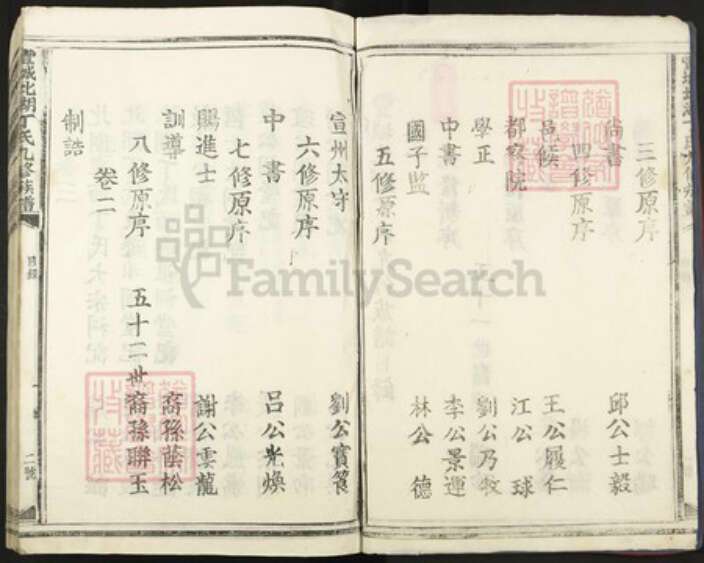 三修原序
尚書 邱公士毅
四修原序
邑候 王公履仁
都察院 江公球
學正 劉公乃
中書 李公景運
國子監 林公德
五修原序
宣州太守 劉公賓
六修原序
中書 呂公光煥
七修原序
賜進士 謝公雲龍
訓導 裔孫蔭松
八修原序 五十二世裔孫聯玉
卷二
制誥
城北湖丁氏九修族譜
目錄
二號
FamilySearch